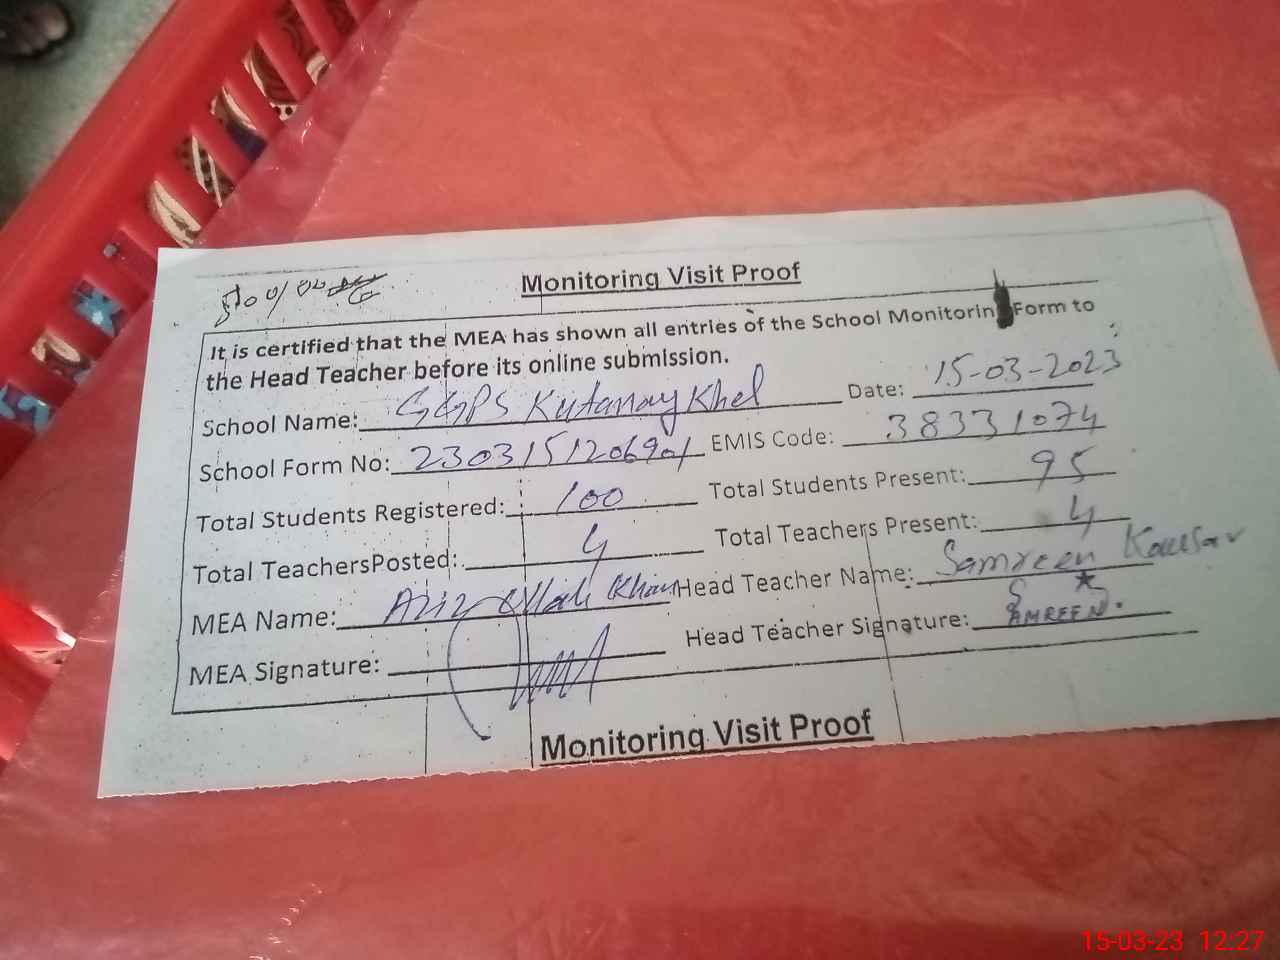 Monitoring Visit Proof
It is certified that the MEA has shown all entries of the School Monitorin Form to
the Head Teacher before its online submission.
School Name: GGPS Kutanay Khel Date: 15-03-2023
School Form No: 230315120690/ EMIS Code: 38331074
Total Students Registered: 100 Total Students Present: 95
Total TeachersPosted: 4 Total Teachers Present: 4
MEA Name: Aziz Ullah Khan Head Teacher Name: Samreen Kousar
MEA Signature: Head Teacher Signature: SAMREEN.
Monitoring Visit Proof
15-03-23 12:27